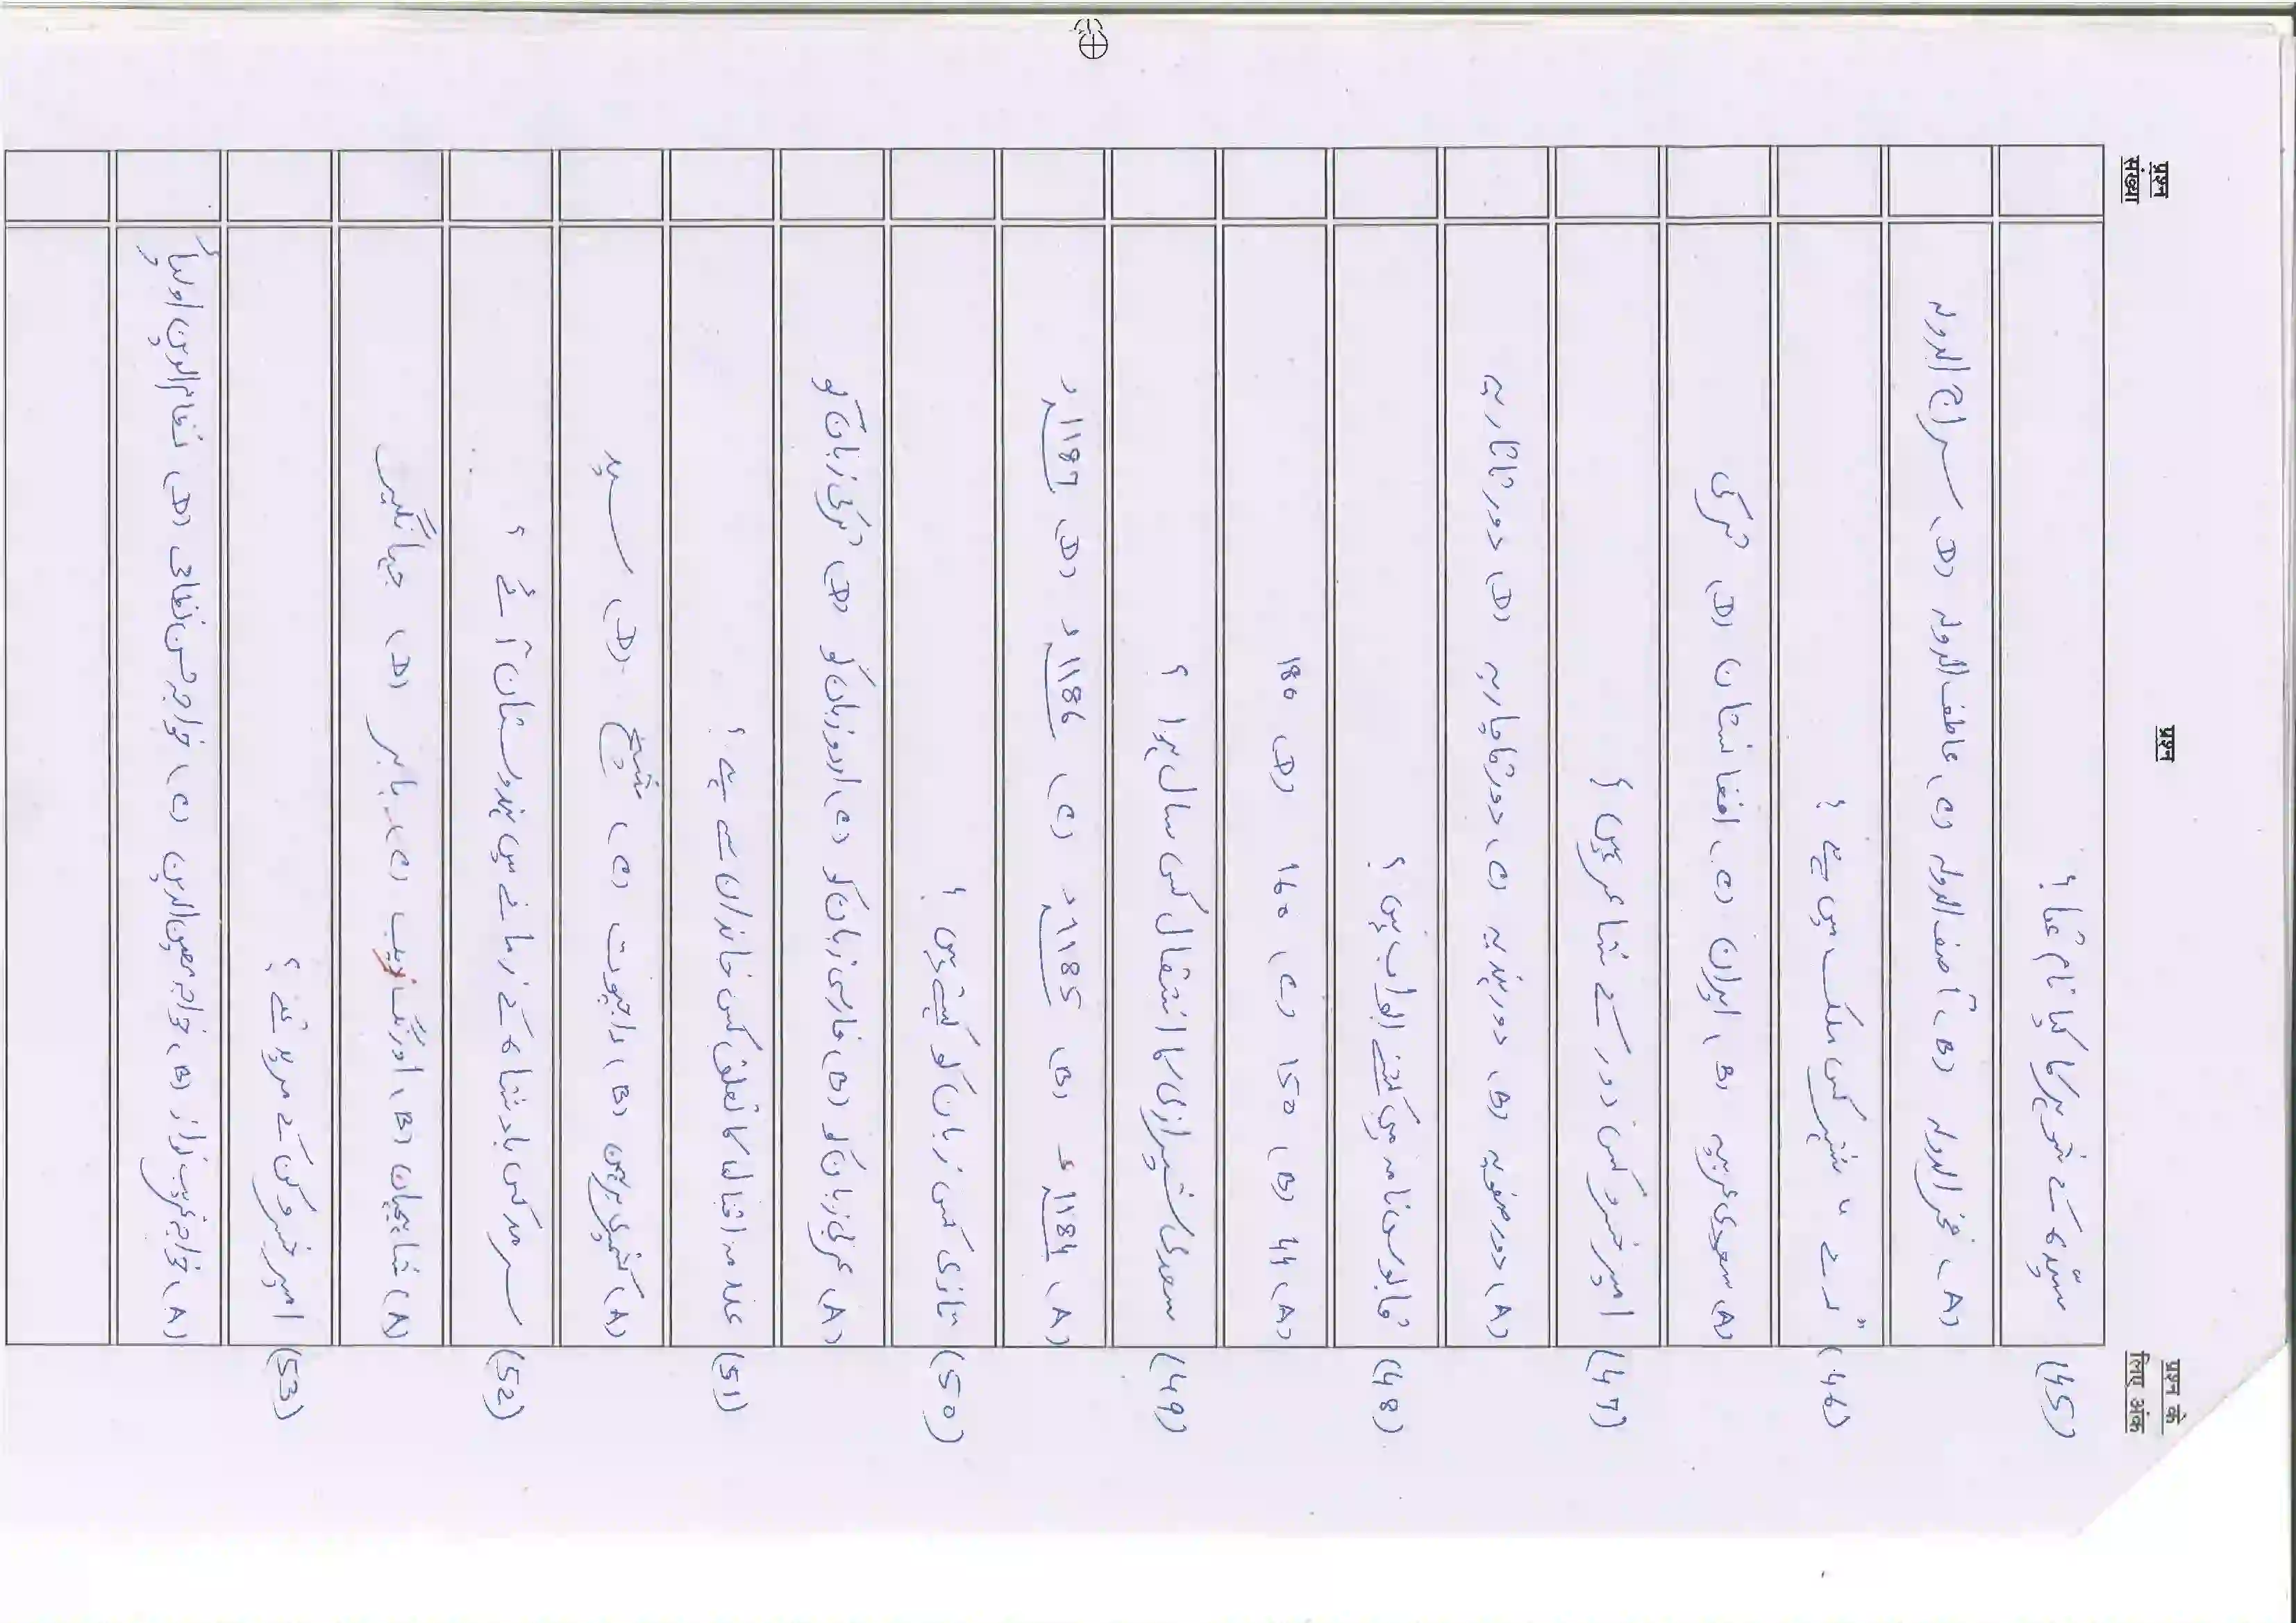 प्रश्न संख्या
प्रश्न
प्रश्न के लिए अंक
(45) سیّدہ کے شوہر کا کیا نام تھا ؟
(A) فخر الدولہ (B) آصف الدولہ (C) عاطف الدولہ (D) سراج الدولہ
(46) "رے" یا شہر کس ملک میں ہے ؟
(A) سعودی عربیہ (B) ایران (C) افغانستان (D) ترکی
(47) امیر خسرو کس دور کے شاعر ہیں ؟
(A) دور صفویہ (B) دور ہندیہ (C) دور قاچاریہ (D) دور تاتاریہ
(48) قابوس نامہ میں کتنے ابواب ہیں ؟
(A) 44 (B) 150 (C) 160 (D) 180
(49) سعدی شیرازی کا انتقال کس سال ہوا ؟
(A) 1184ء (B) 1185ء (C) 1186ء (D) 1187ء
(50) تازی کس زبان کو کہتے ہیں ؟
(A) عربی زبان کو (B) فارسی زبان کو (C) اردو زبان کو (D) ترکی زبان کو
(51) علامہ اقبال کا تعلق کس خاندان سے ہے ؟
(A) کشمیری برہمن (B) راجپوت (C) شیخ (D) سید
(52) سرمد کس بادشاہ کے زمانے میں ہندوستان آئے ؟
(A) شاہجہان (B) اورنگ زیب (C) بابر (D) جہانگیر
(53) امیر خسرو کن کے مرید تھے ؟
(A) خواجہ غریب نواز (B) خواجہ معین الدین (C) خواجہ حسن نظامی (D) نظام الدین اولیاءؒ